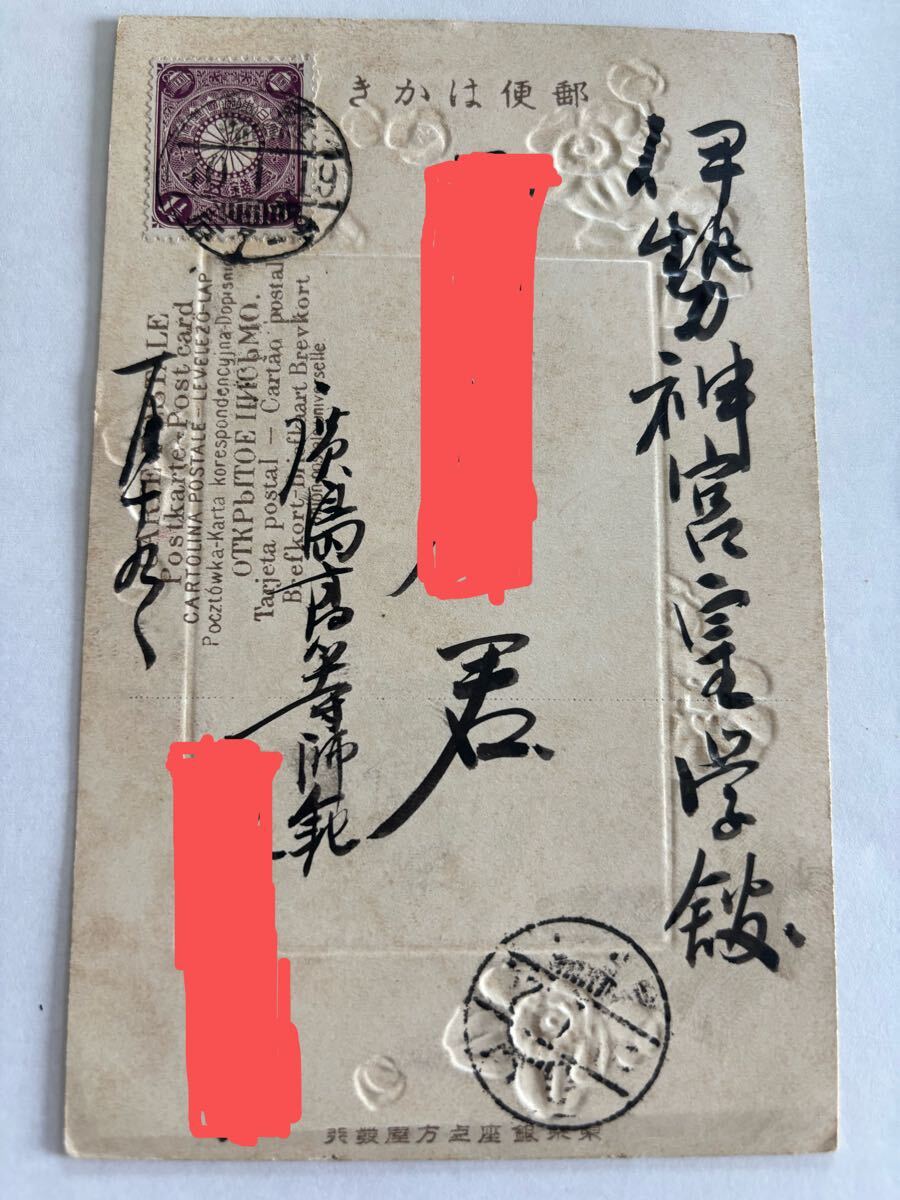 郵便はかき
伊勢神宮皇学館
君
廣島高等師範
CARTE POSTALE
Postkarte-Postcard
CARTOLINA POSTALE-LEVELEZŐ-LAP
Pocztówka-Karta korespondencyjna-Dopisnice
ОТКРЫТОЕ ПИСЬМО.
Tarjeta postal — Cartão postal
Briefkort-Briefkaart Brevkort
Union postale universelle
東京銀座上方屋發行